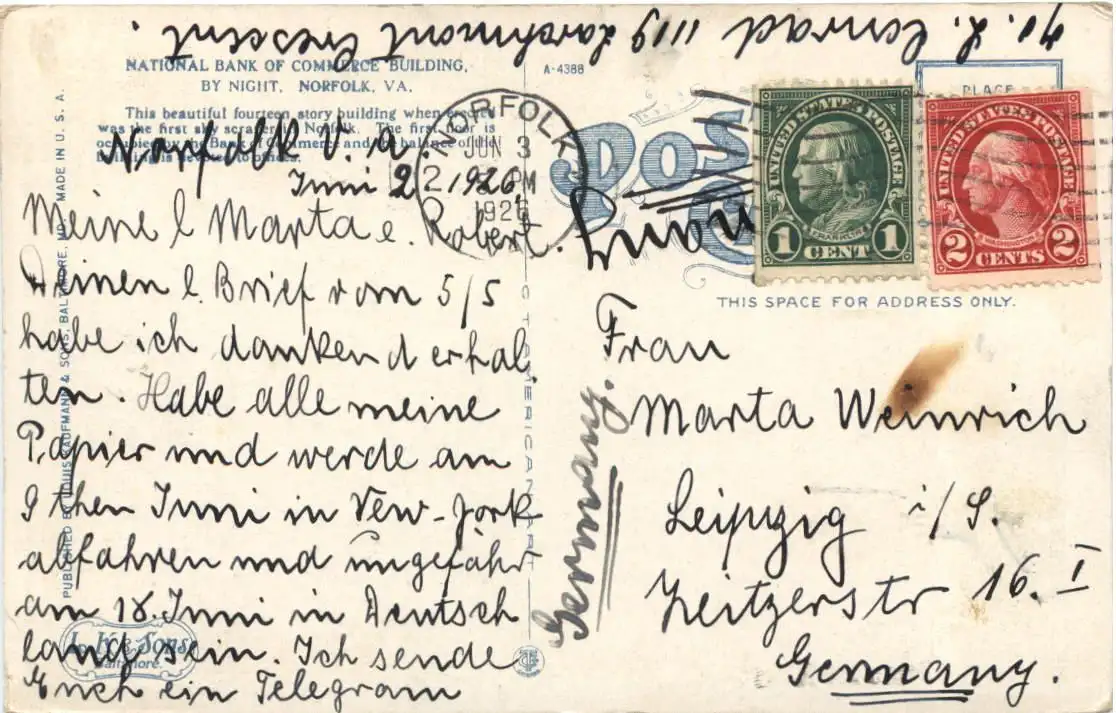 ℅. L. Conrad 1119 Larchmont Crescent.
NATIONAL BANK OF COMMERCE BUILDING,
BY NIGHT, NORFOLK, VA.
This beautiful fourteen story building when erected
was the first sky scraper in Norfolk. The first floor is
occupied by the Bank of Commerce and the balance of the
building is devoted to offices.
A-4388
Norfolk V. a.
Juni 2. 1926.
Meine l Marta e. Robert.
Deinen l. Brief vom 5/5
habe ich dankend erhal
ten. Habe alle meine
Papier und werde am
9 then Juni in New-Jork
abfahren und ungefähr
am 18. Juni in Deutsch
land sein. Ich sende
Euch ein Telegram
NORFOLK
JUN 3
2 PM
1926
PLACE
UNITED STATES POSTAGE
FRANKLIN
1 CENT 1
UNITED STATES POSTAGE
WASHINGTON
2 CENTS 2
POS
THIS SPACE FOR ADDRESS ONLY.
Frau
Marta Weinrich
Leipzig i/S.
Zeitzerstr 16. I
Germany.
Germany.
PUBLISHED BY LOUIS KAUFMANN & SONS, BALTIMORE, MD. MADE IN U. S. A.
L. K. & Sons
Baltimore.